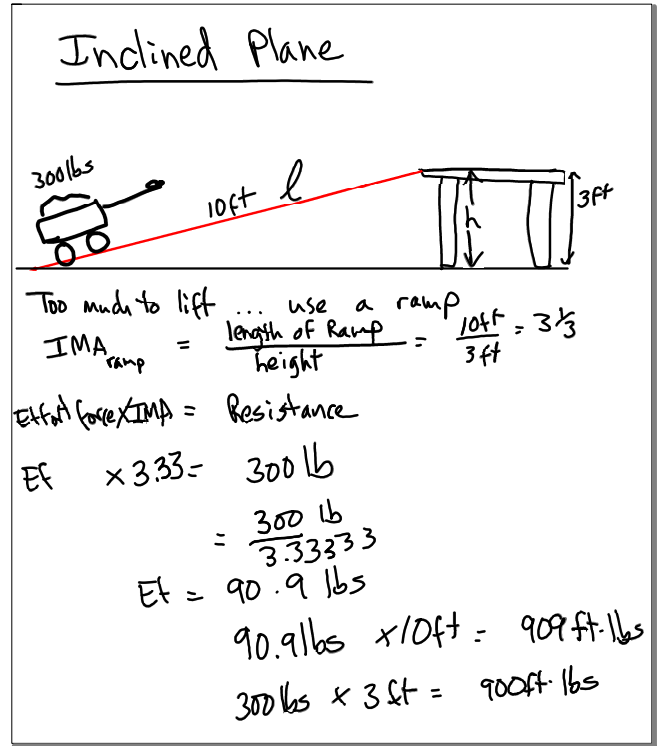 Inclined Plane
300lbs
10ft l
h
3ft
Too much to lift ... use a ramp
IMA ramp = length of Ramp / height = 10ft / 3ft = 3 1/3
Effort force x IMA = Resistance
Ef x 3.33 = 300 lb
= 300 lb / 3.33333
Ef = 90.9 lbs
90.9lbs x 10ft = 909 ft·lbs
300 lbs x 3 ft = 900ft· lbs